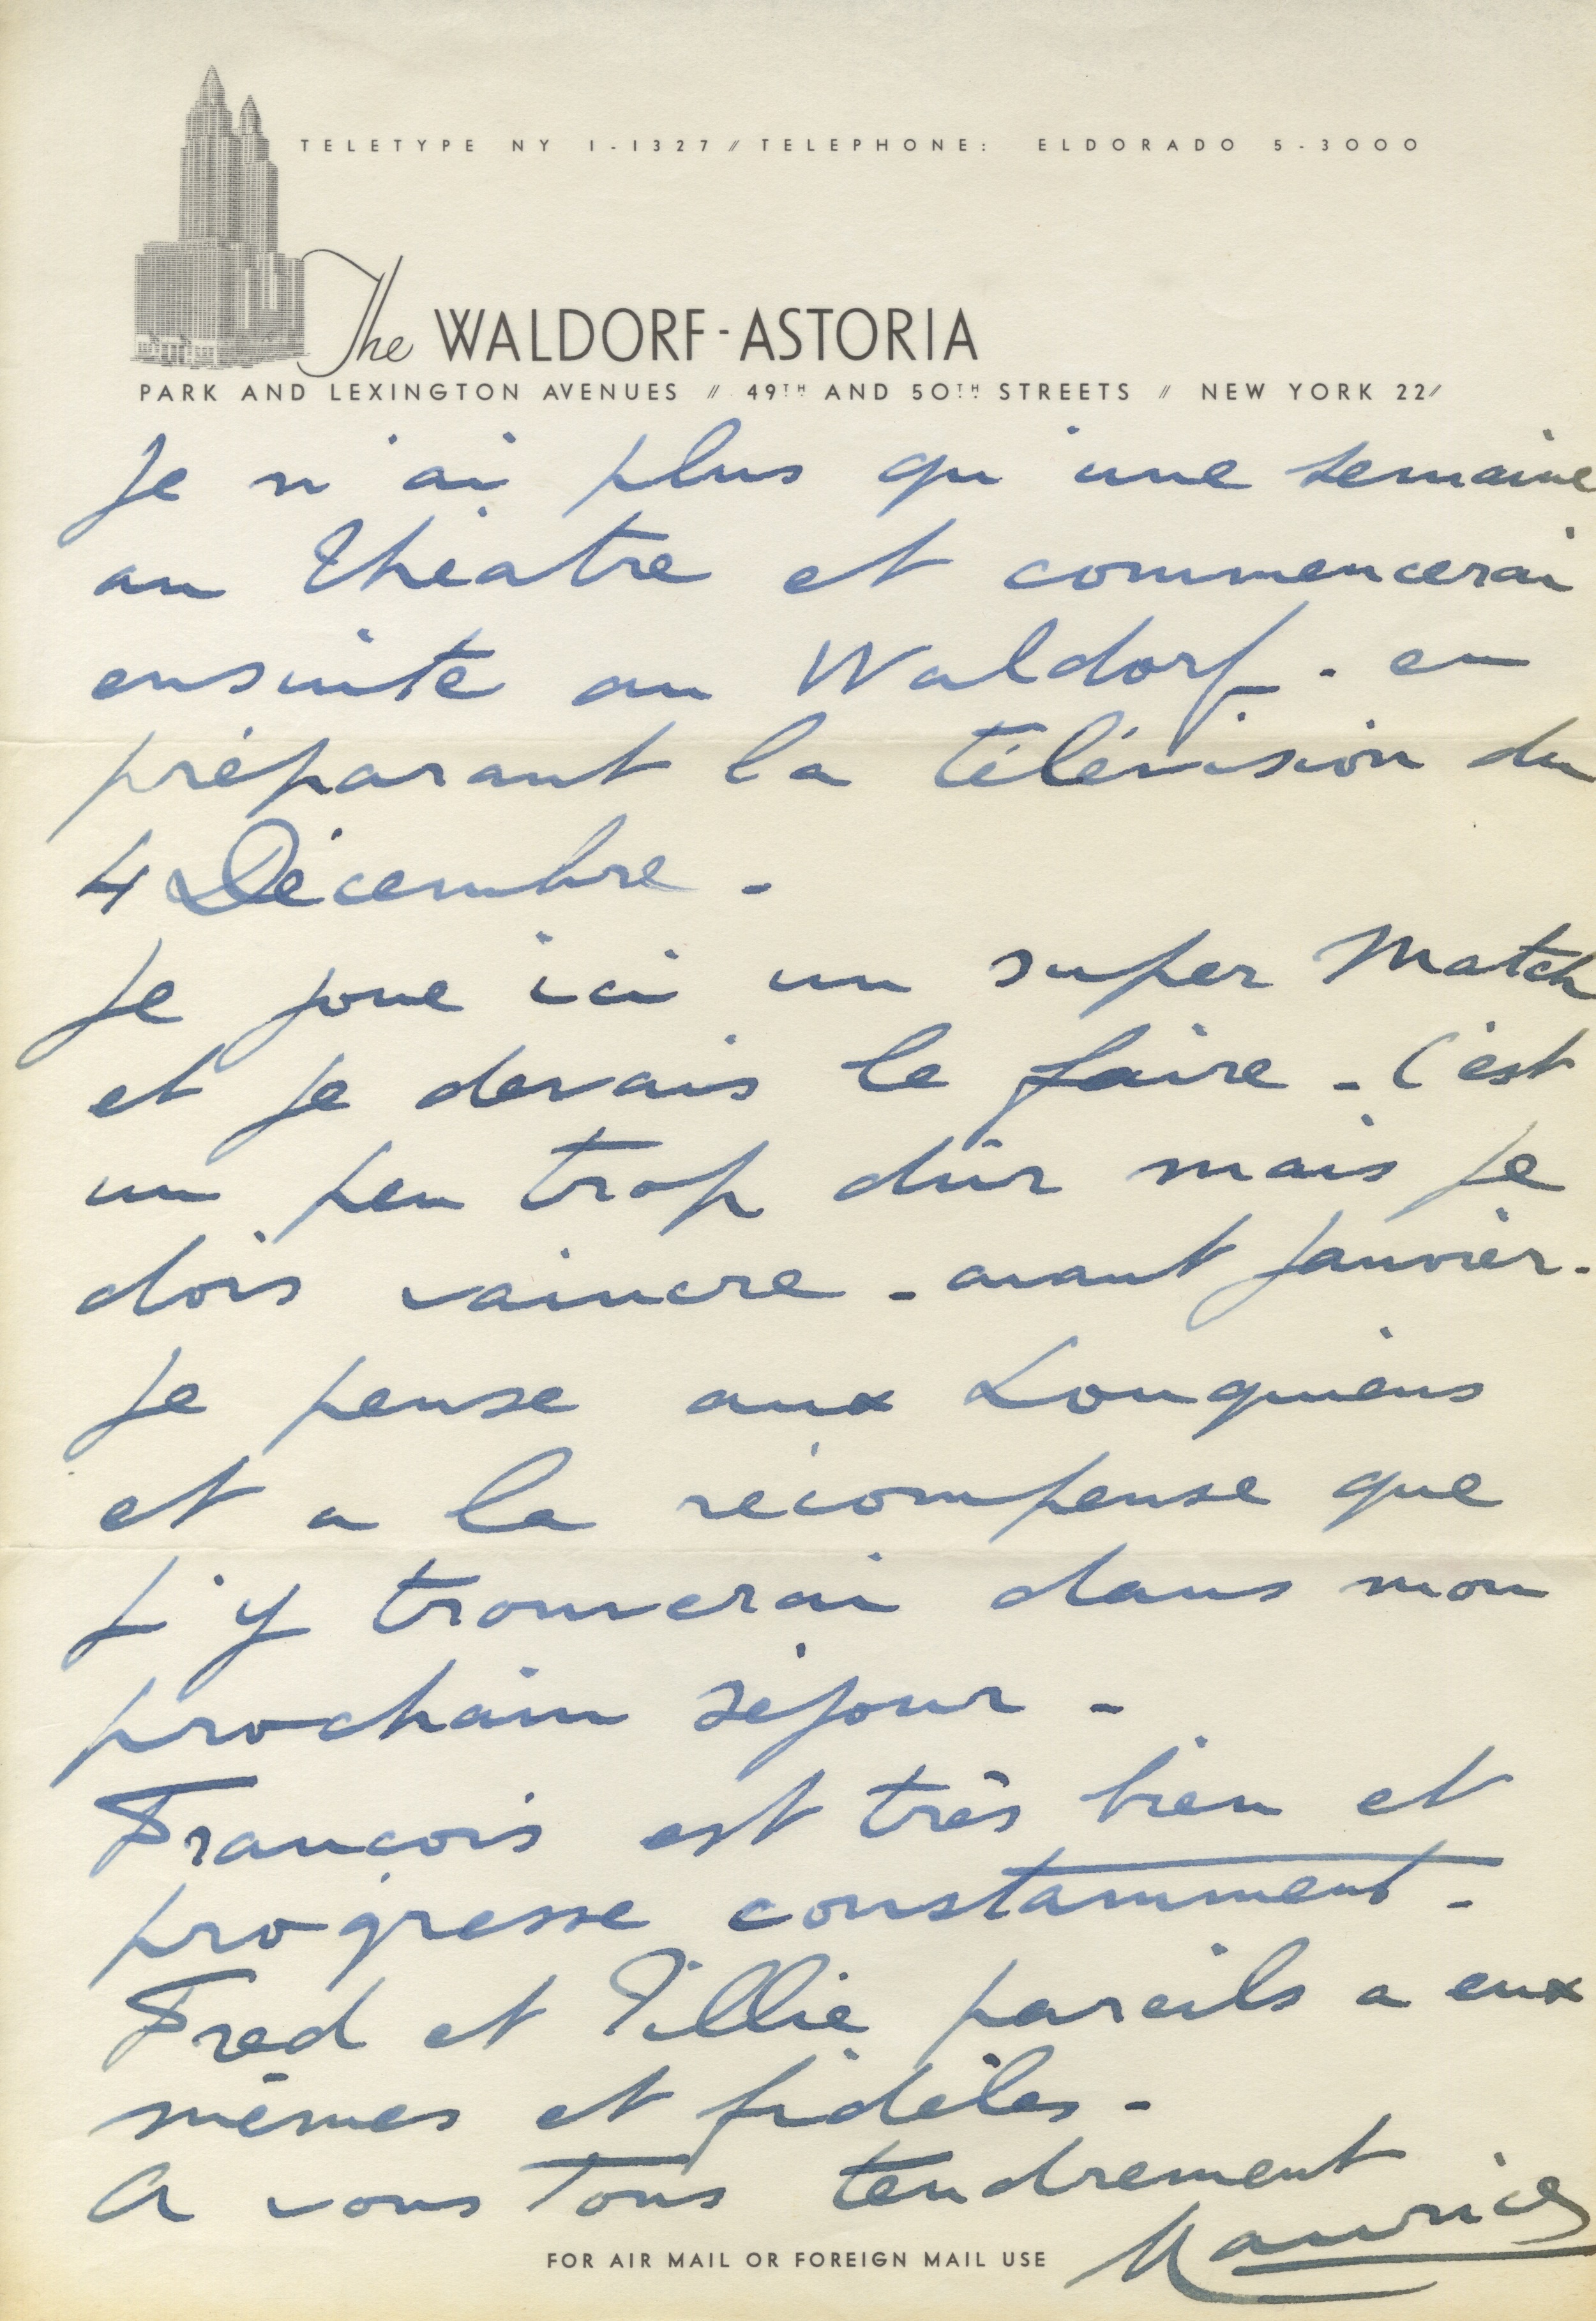 TELETYPE NY 1-1327 // TELEPHONE: ELDORADO 5-3000
The WALDORF-ASTORIA
PARK AND LEXINGTON AVENUES // 49TH AND 50TH STREETS // NEW YORK 22/
Je n'ai plus qu'une semaine
au théatre et commencerai
ensuite au Waldorf. en
préparant la télévision du
4 Décembre -
Je joue ici un super Match
et je devais le faire - C'est
un peu trop dûr mais je
dois vaincre - avant Janvier.
Je pense aux Louquiens
et a la récompense que
j'y trouverai dans mon
prochain séjour -
François est très bien et
progresse constamment -
Fred et Tillie pareils a eux
mêmes et fidèles -
A vous tous tendrement
Maurice
FOR AIR MAIL OR FOREIGN MAIL USE